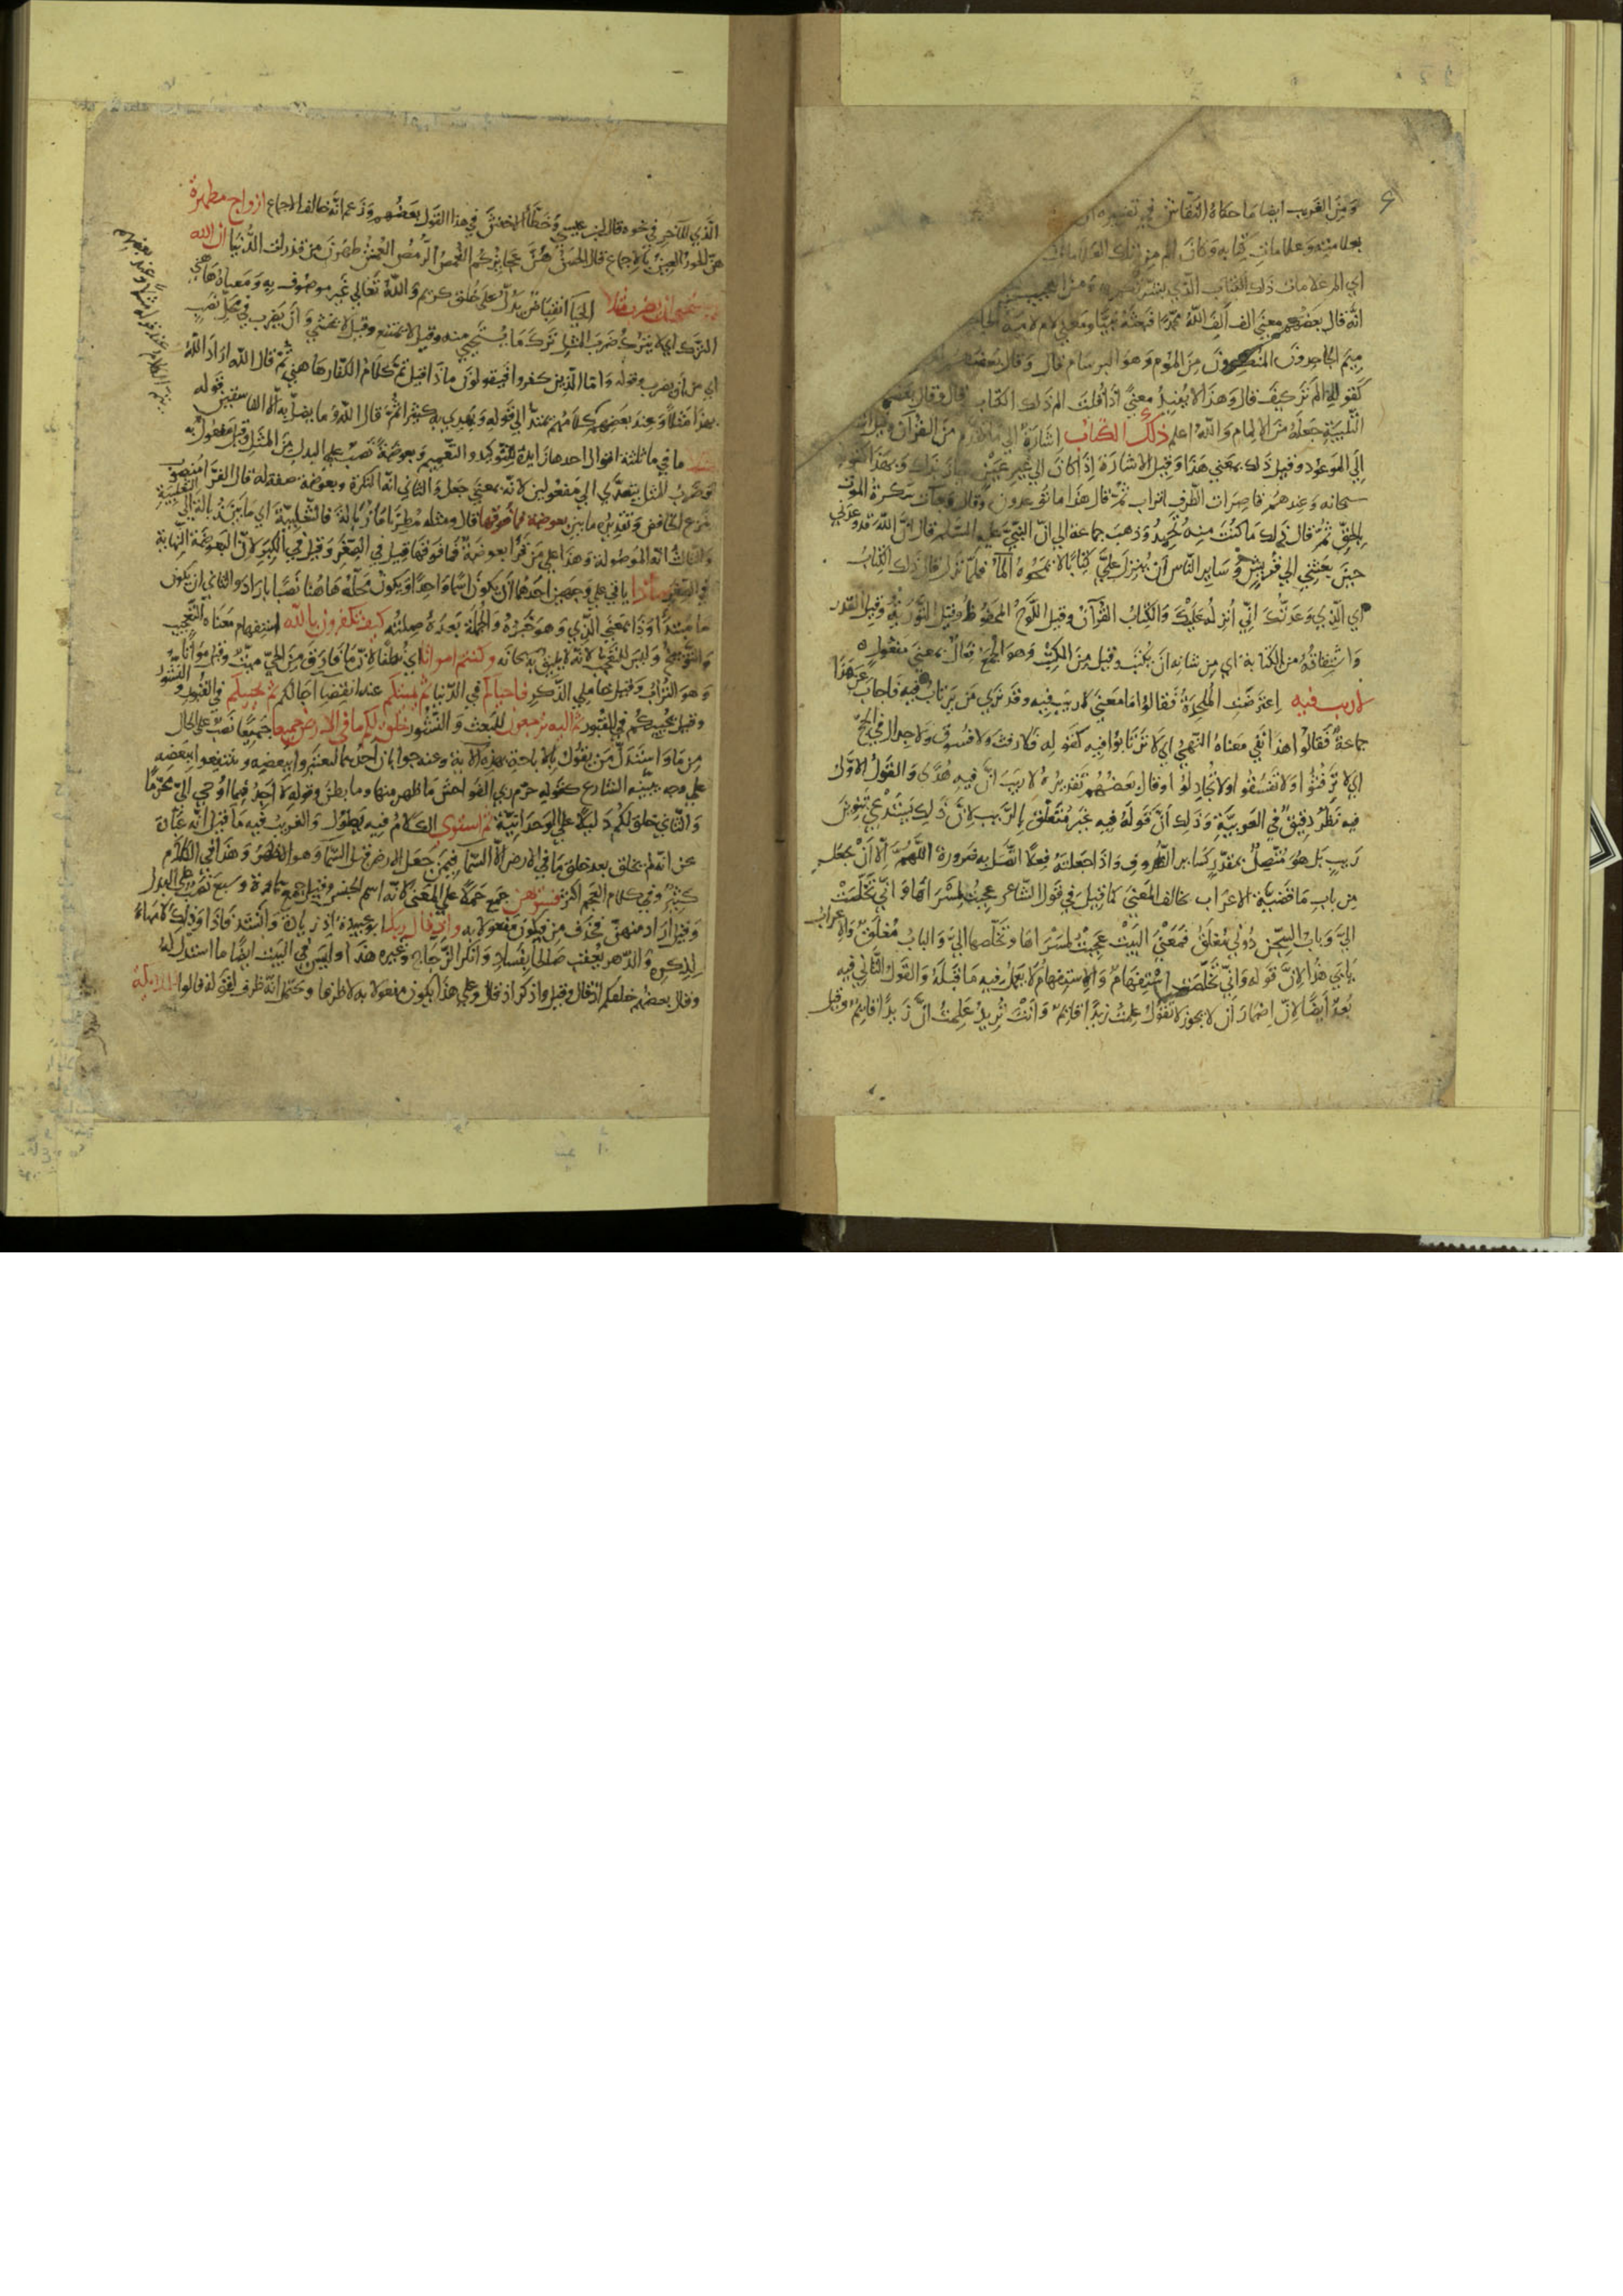 ومن الغريب ايضا ما حكاه النقاش في تفسيره ان
بعلامته وعلامات كتابه وكان الم من تلك العلامات
اي الم علامات ذلك الكتاب الذي ومن العجيب
انه قال بعضهم معنى الف الف الله محمدا فبعثه نبيا ومعنى لام لامه
ميم الجاحدون من الموم وهو البرسام قال وقال بعضهم
كقوله الم تر كيف قال وهذا لا يفيد معنى اذا قلت الم ذلك الكتاب قال وقال بعضهم
جعله من الالمام والله اعلم ذلك الكتاب اشارة الى ما تقدم من القرآن وقيل اشارة
الى الموعود وقيل ذلك بمعنى هذا وقيل الاشارة اذا كان الى غير عين جاز بذلك وبهذا كقوله
سبحانه وعندهم قاصرات الطرف اتراب ثم قال هذا ما توعدون وقال وجاءت سكرة الموت
بالحق ثم قال ذلك ما كنت منه تحيد وذهب جماعة الى ان النبي عليه السلام قال ان الله قد وعدني
حين بعثني الى قريش وساير الناس ان ينزل علي كتابا لا يمحوه الماء فلما نزل قال ذلك الكتاب
اي الذي وعدتك اني انزله عليك والكتاب القرآن وقيل اللوح المحفوظ وقيل التورية وقيل القدر
واشتقاقه من الكتابة اي من شانه ان يكتب وقيل من الكتب وهو الجمع فعال بمعنى مفعول
لا ريب فيه اعترضت الملحدة فقالوا ما معنى لا ريب فيه وقد نرى من يرتاب فيه فاجاب عن هذا
جماعة فقالوا هذا نفي معناه النهي اي لا ترتابوا فيه كقوله فلا رفث ولا فسوق ولا جدال في الحج
اي لا ترفثوا ولا تفسقوا ولا تجادلوا وقال بعضهم تقديره لا ريب ان فيه هدى والقول الاول
فيه نظر دقيق في العربية وذلك ان قوله فيه غير متعلق بالريب لان ذلك يستدعي تنوين
ريب بل هو متصل بمقدر كساير الظروف واذا جعلته فعلا اتصل به ضرورة اللهم الا ان يجعل
من باب ما قضية الاعراب يخالف المعنى كما قيل في قول الشاعر عجبت لمسراها واني تخلصت
الي وباب السجن دوني مغلق فمعنى البيت عجبت لمسراها وتخلصها الي والباب مغلق والاعراب
يابى هذا لان قوله واني تخلصت استفهام والاستفهام لا يعمل فيه ما قبله والقول الثاني فيه
بعد ايضا لان اضمار ان لا يجوز لا تقول علمت زيدا قائم وانت تريد علمت ان زيدا قائم وقيل
الذي للآخر في نحوه قال ابن عيسى وخطأ الاخفش في هذا القول بعضهم وزعم انه خالف الاجماع ازواج مطهرة
هن الحور العين بالاجماع قال الحسن هن عجائزكم الغمص الرمص العمش طهرن من قذرات الدنيا ان الله
لا يستحيي ان يضرب مثلا الحيا انقباض يدل على خلق كريم والله تعالى غير موصوف به ومعناه هاهنا
الترك اي لا يترك ضرب المثل ترك ما يستحيى منه وقيل لا يمتنع وقيل لا يخشى وان يضرب في محل نصب
اي من ان يضرب وقوله واما الذين كفروا فيقولون ماذا قيل تم كلام الكفار هاهنا ثم قال الله اراد الله
بهذا مثلا وعند بعضهم كلامهم يمتد الى قوله ويهدي به كثيرا ثم قال الله وما يضل به الا الفاسقين قوله
ما في ما ثلثة اقوال احدها زايدة للتوكيد والتعميم وبعوضة نصب على البدل من المثل وقيل مفعول به
وضرب المثل يتعدى الى مفعولين لانه بمعنى جعل والثاني انه النكرة وبعوضة صفة له قال الفرا منصوب
بنزع الخافض وتقديره ما بين بعوضة فما فوقها قال ومثله مطرنا ما زبالة فالثعلبية اي ما بين زبالة الى الثعلبية
والثالث انه الموصولة وهذا على من قرأ بعوضة فما فوقها قيل في الصغر وقيل في الكبر لان البعوضة النهاية
في الصغر ماذا ياتي على وجهين احدهما ان يكون اسما واحدا ويكون محله هاهنا نصبا باراد والثاني ان يكون
ما مبتدأ وذا بمعنى الذي وهو خبره والجملة بعده صلته كيف تكفرون بالله استفهام معناه التعجيب
والتوبيخ وليس للتعجب لانه لا يليق به سبحانه وكنتم امواتا اي نطفا لان ما فارق من الحي ميت وقيل مواتا
وهو التراب وقيل خاملي الذكر فاحياكم في الدنيا ثم يميتكم عند انقضا اجالكم ثم يحييكم في القبور والنشور
وقيل يحييكم في القبور ثم اليه ترجعون للبعث والنشور خلق لكم ما في الارض جميعا جميعا نصب على الحال
من ما واستدل من يقول بالاباحة بهذه الاية وعنه جوابان احدهما لتعتبروا ببعضه وتنتفعوا ببعضه
على وجه يبينه الشارع كقوله حرم ربي الفواحش ما ظهر منها وما بطن وقوله لا اجد فيما اوحي الي محرما
والثاني خلق لكم دليلا على الوحدانية ثم استوى الكلام فيه يطول والغريب فيه ما قيل انه عبارة
عن انه لم يخلق بعد خلق ما في الارض الا السما فيمن جعل الارض قبل السما وهو الظاهر وهذا في الكلام
كثير وفي كلام العجم اكثر فسويهن جمع حملا على المعنى لانه اسم الجنس وقيل جمع سماوة وسبع نصب على البدل
وقيل اراد منهن فحذف من فيكون مفعولا به واذ قال ربك ابو عبيدة اذ زيادة وانشد فاذا وذلك لا مهاه
لذكره والدهر يعقب صالحا بفساد وانكر الزجاج وغيره هذا وليس في البيت ايضا ما استدل له
وقال بعضهم خلقكم اذ قال وقيل واذكر اذ قال وعلى هذا يكون مفعولا به لا ظرفا ويحتمل انه ظرف لقوله قالوا للملائكة